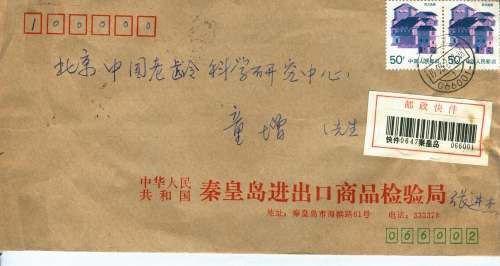 100000
50分 中国人民邮政
50分 中国人民邮政
066001
北京中国老龄科学研究中心
童增 (先生
邮政快件
快件0647秦皇岛 066001
中华人民
共和国 秦皇岛进出口商品检验局
地址:秦皇岛市海滨路61号 电话:333378
066002